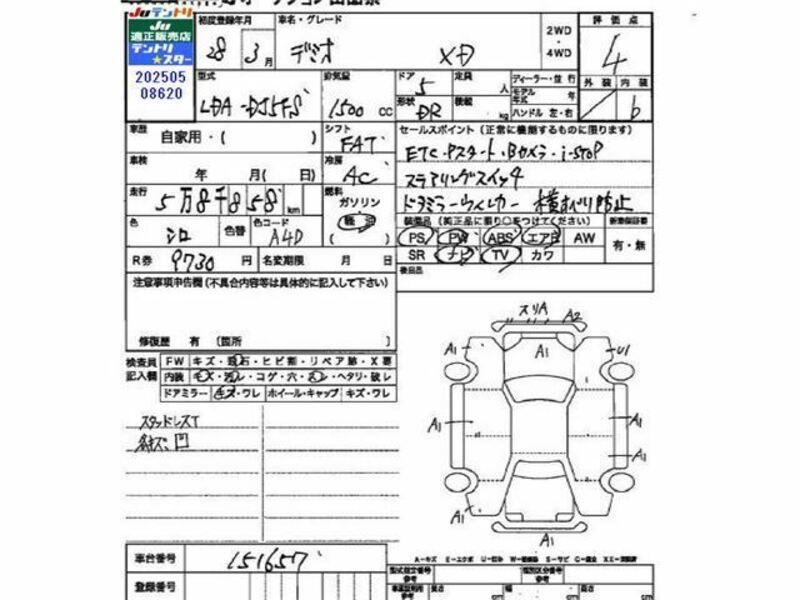 JUテントリ
JU
適正販売店
テントリ
★スター
202505
08620
初度登録年月
28 3月
車名・グレード
デミオ XD
2WD
4WD
評価点
4
外装 内装
b
型式
LDA-DJ5FS
排気量
1500 CC
ドア 5
定員 人
形状 DR
積載 kg
ディーラー・並行
モデル年式 年
ハンドル 左・右
車歴
自家用・( )
シフト
FAT
車検
年 月( 日)
冷房
AC
セールスポイント(正常に機能するものに限ります)
ETC・Pスタート・Bカメラ・i-STOP
ステアリングスイッチ
ドアミラーウィンカー 横すべり防止
走行
5万8千858 km
燃料
ガソリン
軽油
( )
色
シロ
色替
色コード
A4D
装備品(純正品に限り○をつけてください)
新車保証書
PS PW ABS エアB AW
有・無
SR ナビ TV カワ
R券 9730 円
名変期限 月 日
後日品
注意事項申告欄(不具合内容等は具体的に記入して下さい)
修復歴 有 〔箇所 〕
検査員
記入欄
FW キズ・飛石・ヒビ割・リペア跡・X要
内装 キズ・汚レ・コゲ・穴・スレ・ヘタリ・破レ
ドアミラー キズ・ワレ ホイール・キャップ キズ・ワレ
スタッドレスT
凹
スリA A2
A1 A1 U1
A1 A1
A1
A1
A1
A-キズ E-エクボ U-凹
車台番号 151657
登録番号
型式指定番号
参考
類別区分番号
参考
長さ cm 幅 cm 高さ cm